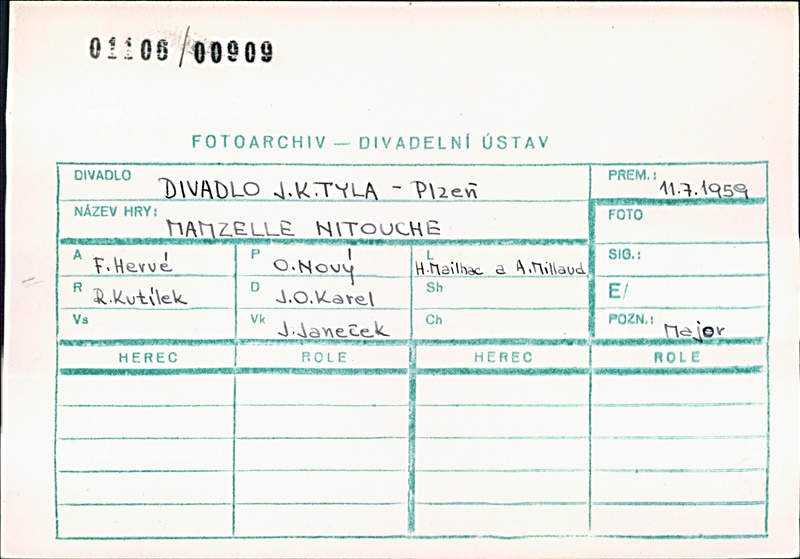 01106/00909
FOTOARCHIV — DIVADELNÍ ÚSTAV
DIVADLO DIVADLO J.K.TYLA - Plzeň PREM.: 11.7.1959
NÁZEV HRY: MAMZELLE NITOUCHE FOTO
A F.Hervé P O.Nový L H.Mailhac a A.Millaud SIG.:
R R.Kutílek D J.O.Karel Sh E/
Vs Vk J.Janeček Ch POZN.: Major
HEREC ROLE HEREC ROLE